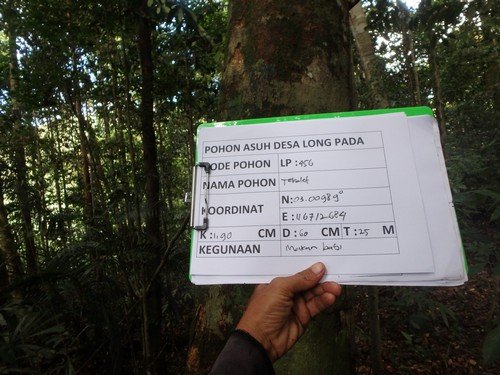 POHON ASUH DESA LONG PADA
KODE POHON LP : 456
NAMA POHON
KOORDINAT N: 03.00989°
E: 116712684
K : 190 CM D : 60 CM T : 25 M
KEGUNAAN Makan babi